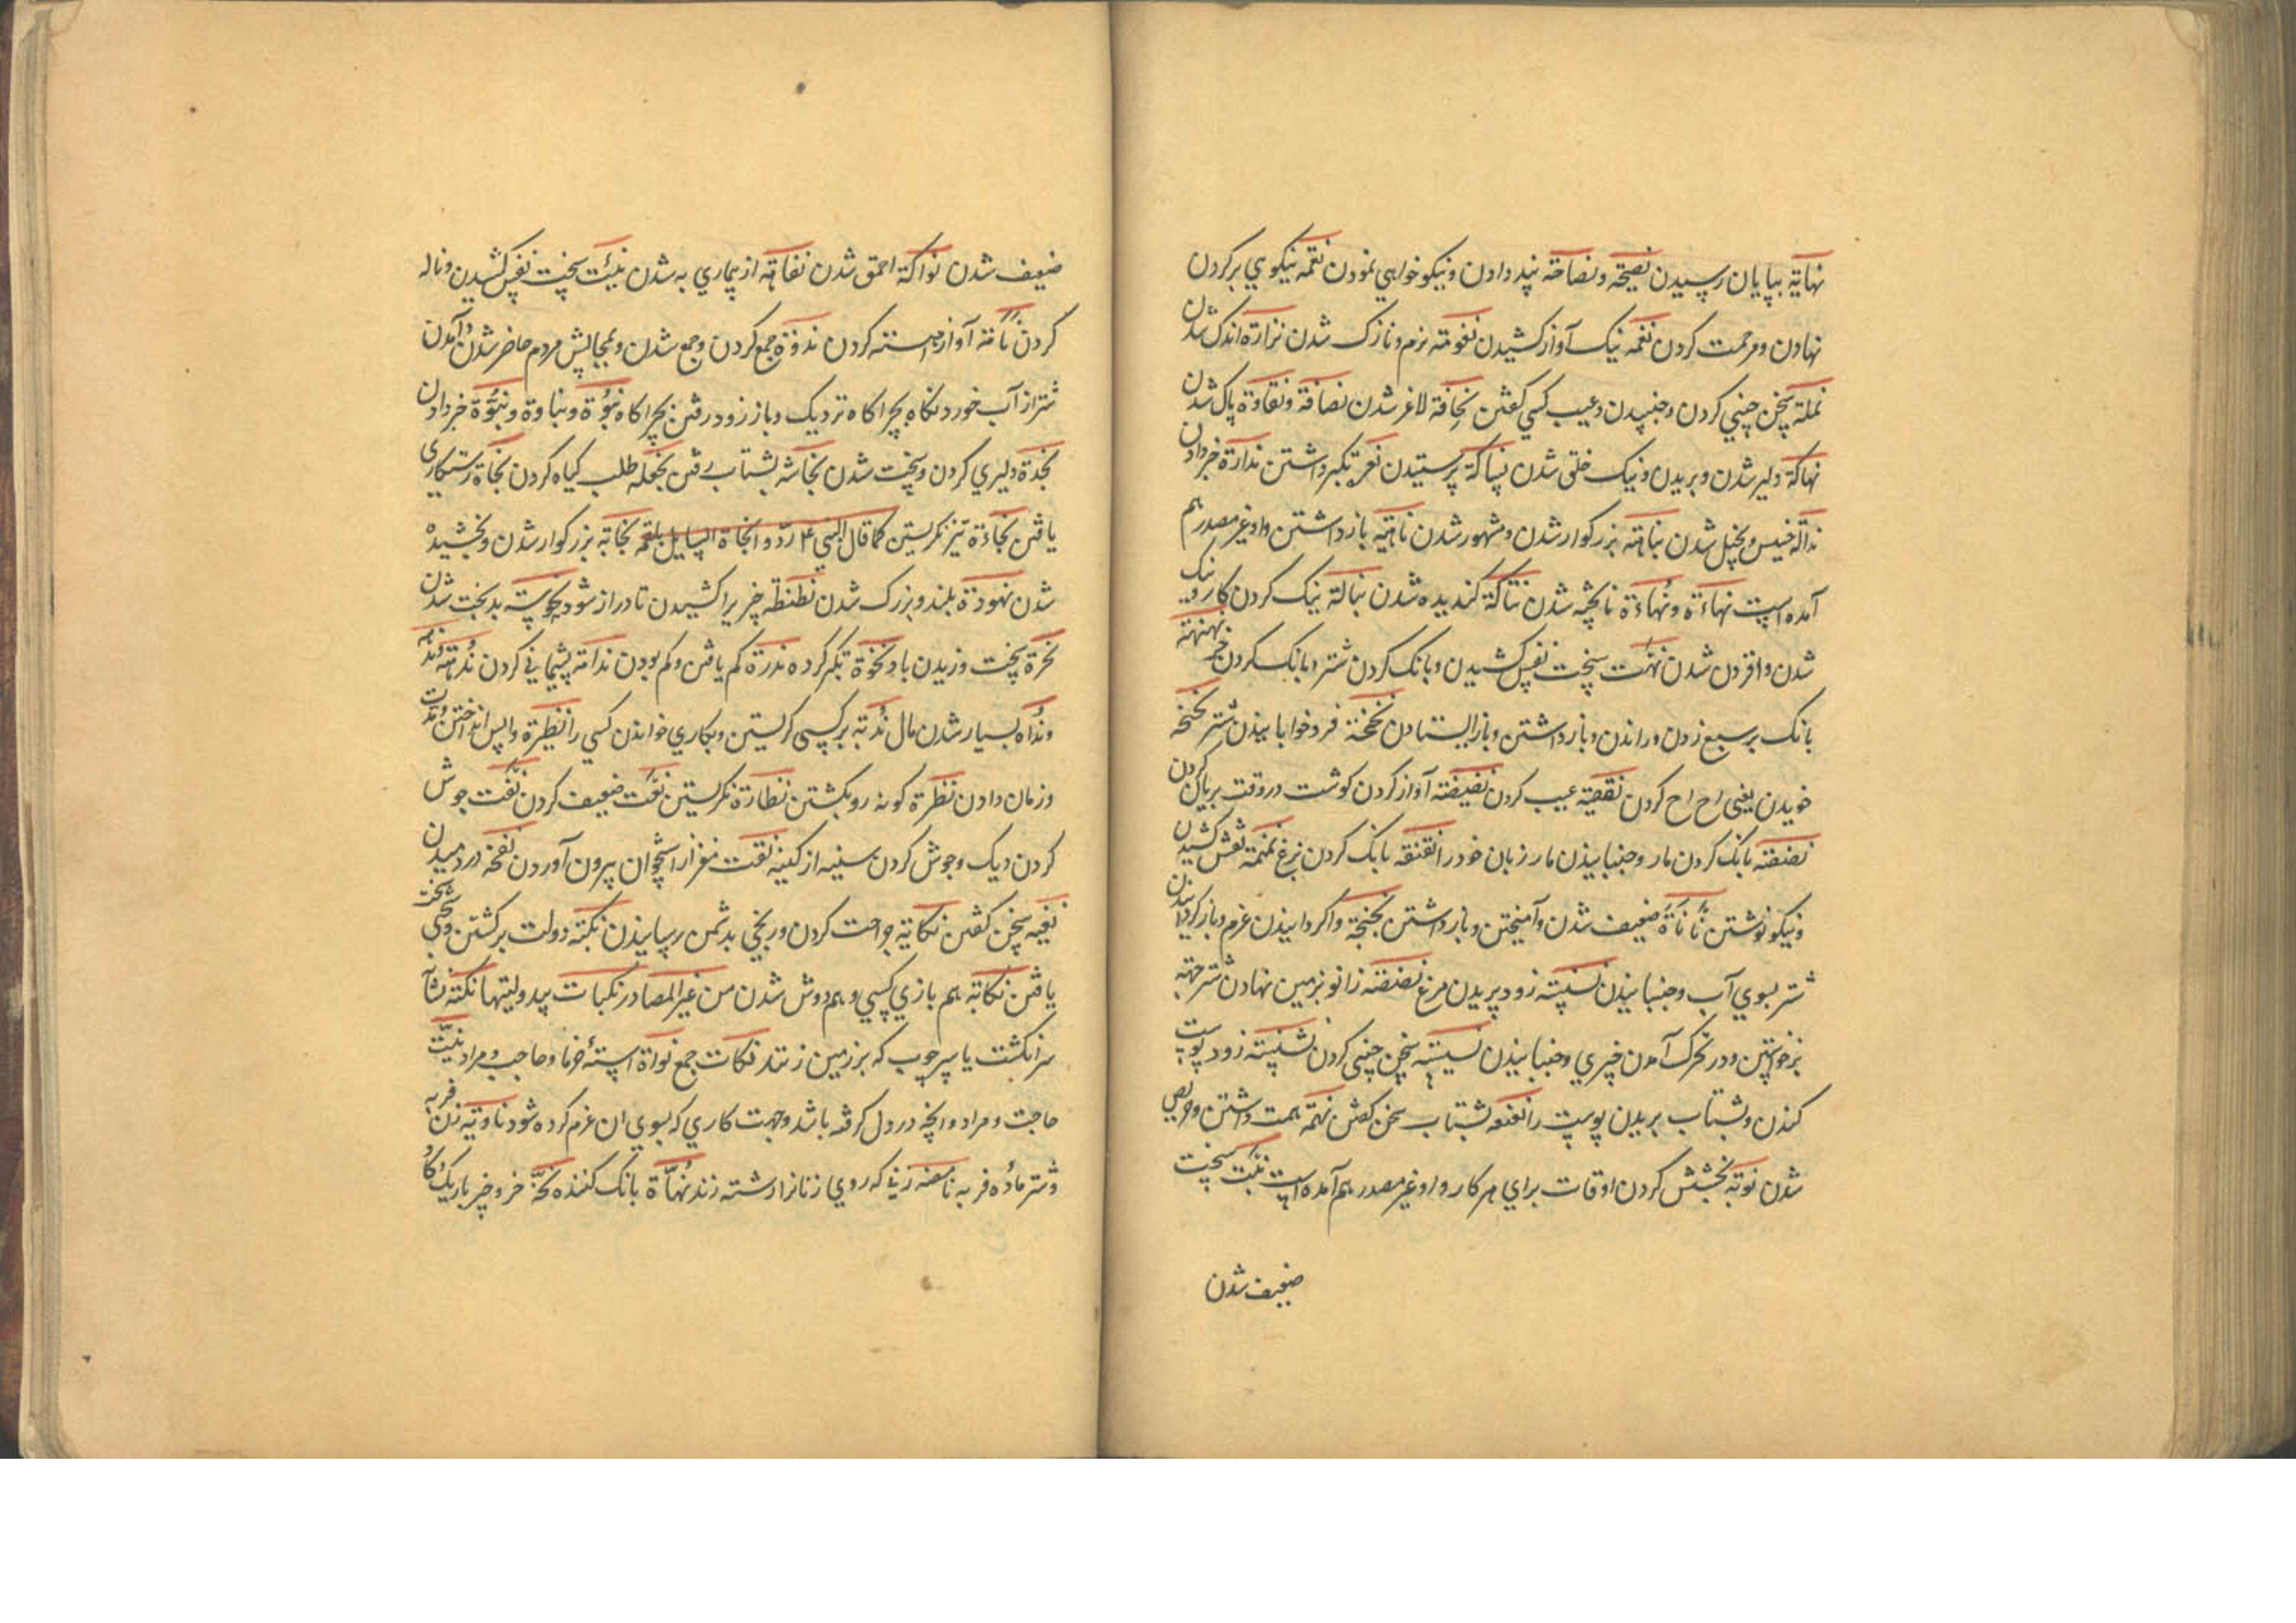 نهایة بپایان رسیدن نصیحة و نصاحة پند دادن و نیکو خواهی نمودن نقمه نیکویی بر کردن
نهادن و مرحمت کردن نغمه نیک آواز کشیدن نعومة نرم و نازک شدن نزارة اندک شدن
نملة سخن چینی کردن و جنبیدن و عیب کسی گفتن نحافة لاغر شدن نصافة و نقاوة پاک شدن
نهاکة دلیر شدن و بریدن و نیک خلق شدن نساکة پرستیدن نعرة تکبر داشتن نذارة خبر دادن
نذالة خسیس و بخیل شدن نباهة بزرگوار شدن و مشهور شدن ناهیة باز داشتن و او غیر مصدر هم
آمده است نهاءة و نُهاءة ناپخته شدن نتاکة گندیده شدن نبالة نیک کردن کار و نیک
شدن و افزون شدن نهئت سخت نفس کشیدن و بانگ کردن شتر و بانگ کردن خر نهنهة
بانگ بر سبع زدن و راندن و باز داشتن و باز ایستادن نخنخة فرو خوابانیدن شتر نحنحة
خویدن یعنی اح اح کردن نقیصة عیب کردن نضیضة آواز کردن گوشت در وقت بریان کردن
نضنضة بانگ کردن مار و جنبانیدن مار زبان خود را نقنقه بانگ کردن بزغ نمنمة نقش کشیدن
و نیکو نوشتن نأنأة ضعیف شدن و آمیختن و باز داشتن نجنجة واگردانیدن عزم و باز گردانیدن
شتر بسوی آب و جنبانیدن زود پریدن مرغ نصنصة زانو بزمین نهادن شتر جهة
برخواستن و در تحرک آمدن چیزی و جنبانیدن نسیسه سخن چینی کردن نشنشة زود پوست
کندن و بشتاب بریدن پوست را نعنعه بشتاب سخن گفتن نهمة همت داشتن و حریص
شدن نوبة بخشش کردن اوقات برای هر کار و او غیر مصدر هم آمده است سخت
ضعیف شدن
ضعیف شدن نواکة احمق شدن نقاهة از بیماری به شدن نئیت سخت نفس کشیدن و ناله
کردن نأمة آواز آهسته کردن ندوة جمع کردن و جمع شدن و بمجالس مردم حاضر شدن و آمدن
شتر از آب خورد نگاه بچراگاه نزدیک و باز زود رفتن بچراگاه نبوة و نباوة و نبوّة خبر دادن
نجدة دلیری کردن و سخت شدن نجاشه بشتاب رفتن نجعله طلب گیاه کردن نجاة رستگاری
یافتن نجاءة تیز نگریستن کما قال النبی ع م ردّوا نجاة السایل بلقمه نجابة بزرگوار شدن و بخشیده
شدن نهودة بلند و بزرگ شدن نطنطه چیز را کشیدن تا دراز شود نحوست بدبخت شدن
نخرة سخت وزیدن باد نخوة تکبر کرده ندرة کم یافتن و کم بودن ندامة پشیمانی کردن
و نداه بسیار شدن مال ندبة بر کسی گریستن و بکاری خواندن کسی را نظرة واپس انداختن
و زمان دادن نظرة گونه رو بگشتن نظارة نگریستن نهت ضعیف کردن نفت جوش
کردن دیک و جوش کردن سینه از کینه نقت مغز از استخوان بیرون آوردن نفخه در دمیدن
نغیه سخن گفتن نکایة جراحت کردن و رنجی بدشمن رسانیدن نکبة دولت برگشتن و سختی
یافتن نکاته هم بازی کسی و هم دوش شدن من غیر المصادر نکبات بیدولتیها نکتة نشان
سر انگشت یا سر چوب که بر زمین زنند نکات جمع نواة استهٔ خرما و حاجب و مراد نیّت
حاجت و مراد و آنچه در دل گرفته باشد و جهت کاری که بسوی آن عزم کرده شود ناویة زن فربه
و شتر مادهٔ فربه نامصه زنی که روی زنانرا رشته زند نُهاة بانگ کننده نخّة خر و خر باریک